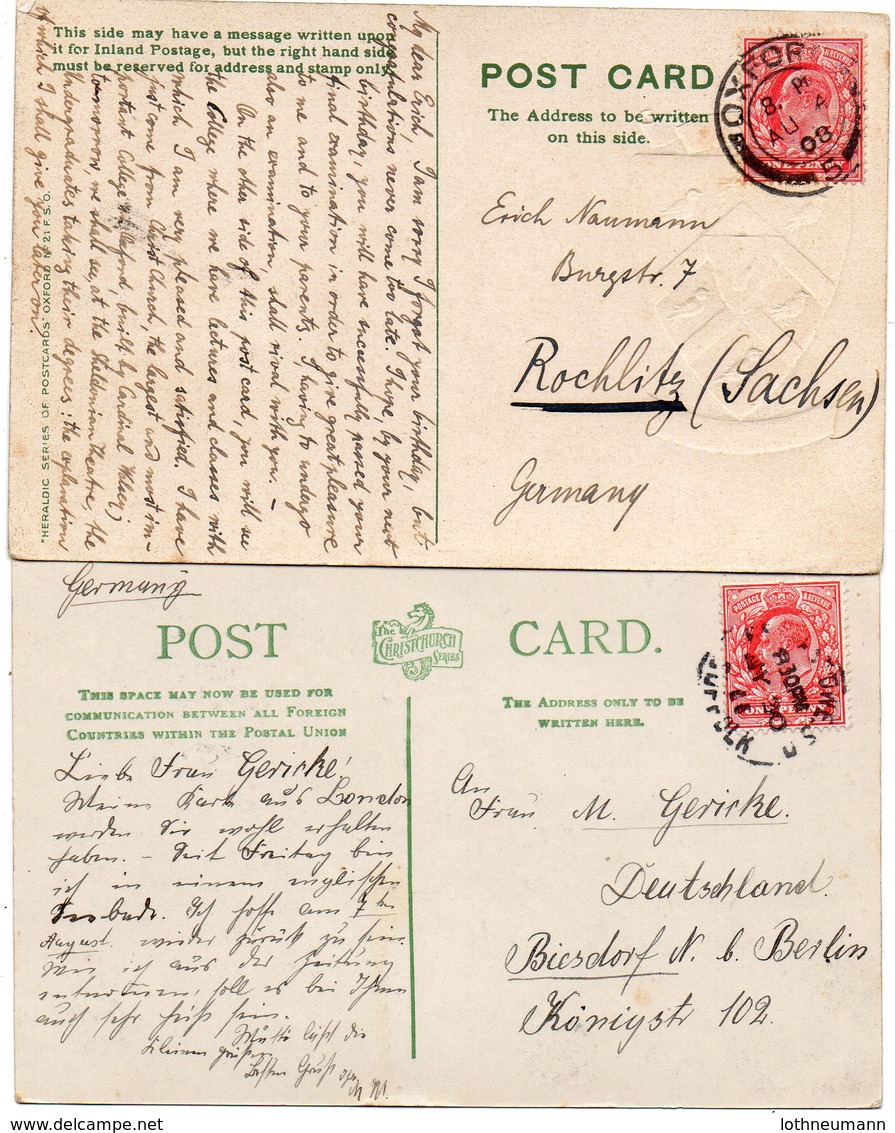 This side may have a message written upon
it for Inland Postage, but the right hand side
must be reserved for address and stamp only.
My dear Erich, I am sorry I forgot your birthday, but
congratulations never come too late. I hope, by your next
birthday you will have successfully passed your
final examination in order to give great pleasure
to me and to your parents. I having to undergo
also an examination, shall rival with you. –
On the other side of this post card, you will see
the College where we have lectures and classes with
which I am very pleased and satisfied. I have
just come from Christ Church, the largest and most im-
portant College of Oxford, built by Cardinal Wolsey;
tomorrow, we shall see, at the Sheldonian Theatre, the
Undergraduates taking their degrees: the explanation
of which I shall give you later on.
"HERALDIC SERIES OF POSTCARDS" OXFORD Nº 21 F.S.O.
POST CARD
The Address to be written
on this side.
OXFORD
8. PM
AU 4
08
ONE PENNY
Erich Naumann
Burgstr. 7
Rochlitz (Sachsen)
Germany
Germany
POST CARD.
The
CHRISTCHURCH
SERIES
THIS SPACE MAY NOW BE USED FOR
COMMUNICATION BETWEEN ALL FOREIGN
COUNTRIES WITHIN THE POSTAL UNION
THE ADDRESS ONLY TO BE
WRITTEN HERE.
POSTAGE & REVENUE
ONE PENNY
8 30PM
30
11
SUFFOLK
Liebe Frau Gericke!
Meine Karte aus London
werden Sie wohl erhalten
haben. – Seit Freitag bin
ich in einem englischen
Seebade. Ich hoffe am 7ten
August wieder zurück zu sein.
Wie ich aus der Zeitung
entnommen, soll es bei Ihnen
auch sehr heiß sein.
Mutti läßt die
Kleinen grüßen
Besten Gruß
An
Frau M. Gericke.
Deutschland.
Biesdorf N. b. Berlin
Königstr 102.
lothneumann